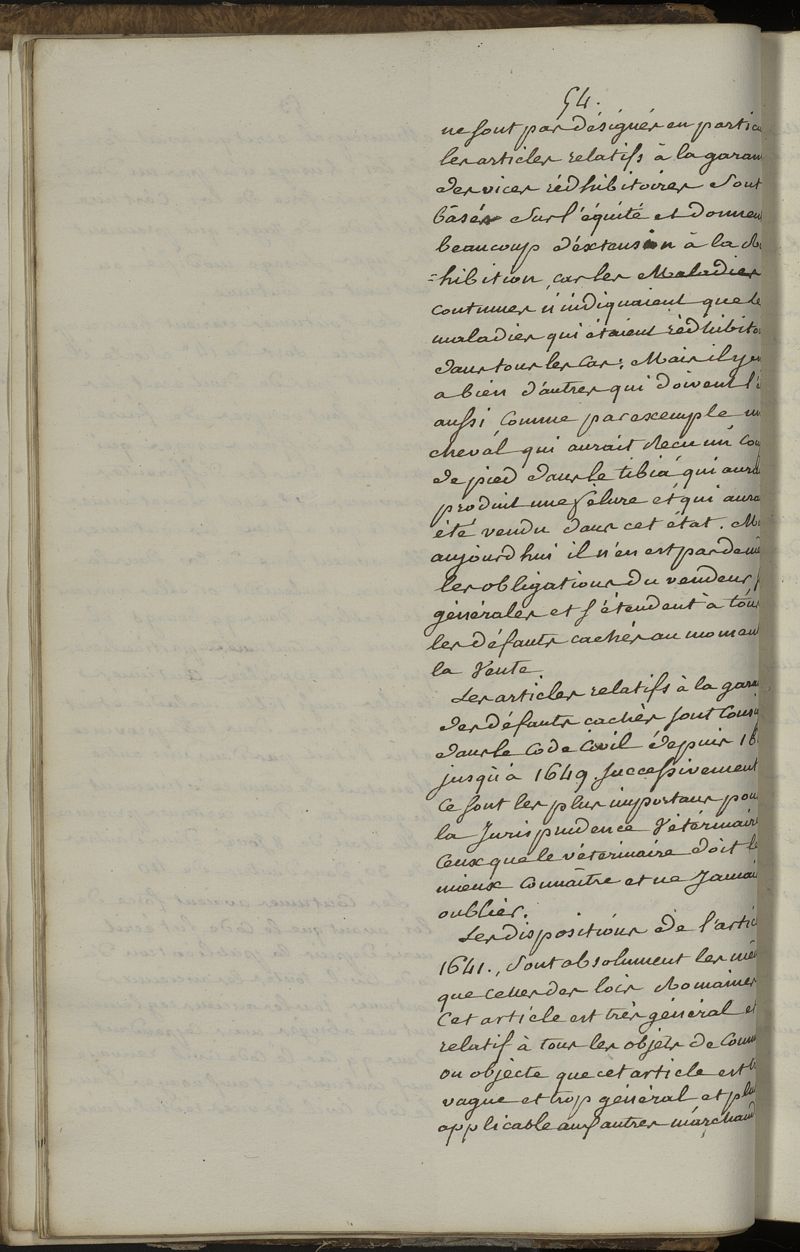 54.
ne sont pas désignés en partic
les articles relatifs à la garan
des vices rédhibitoires sont
bâsés sur l'équité et donnent
beaucoup d'éxtension à la Ré
=hibition, car les Maladies
coutumes n'indiquaient que le
maladies qui étaient rédhibito
dans tous les cas; Mais il y en
a bien d'autres qui doivent l'ê
aussi comme par exemple un
cheval qui aurait Recu un cou
de pied dans le tibiá qui aura
produit une félure et qui aura
été vendu dans cet état. M
aujourd'hui il n'en est pas de mê
les obligations du vendeur
générales et s'étendent à tous
les défauts cachés au momen
la Vente
Les articles relatifs à la gara
des défauts cachés sont Consi
dans le Code Civil depuis 16
jusqu'à 1649 successivement
Ce sont les plus importans pou
la Jurisprudence Vétérinaire
Ceux que le vétérinaire doit le
mieux connaître et ne Jamai
oublier.
Les dispositions de l'artic
1641., sont absolument les mê
que celles des lois Romaines
Cet article est très général et
relatif à tous les objets de Com
on objecte que cet article est
vague et trop général et plu
applicable aux autres marchand